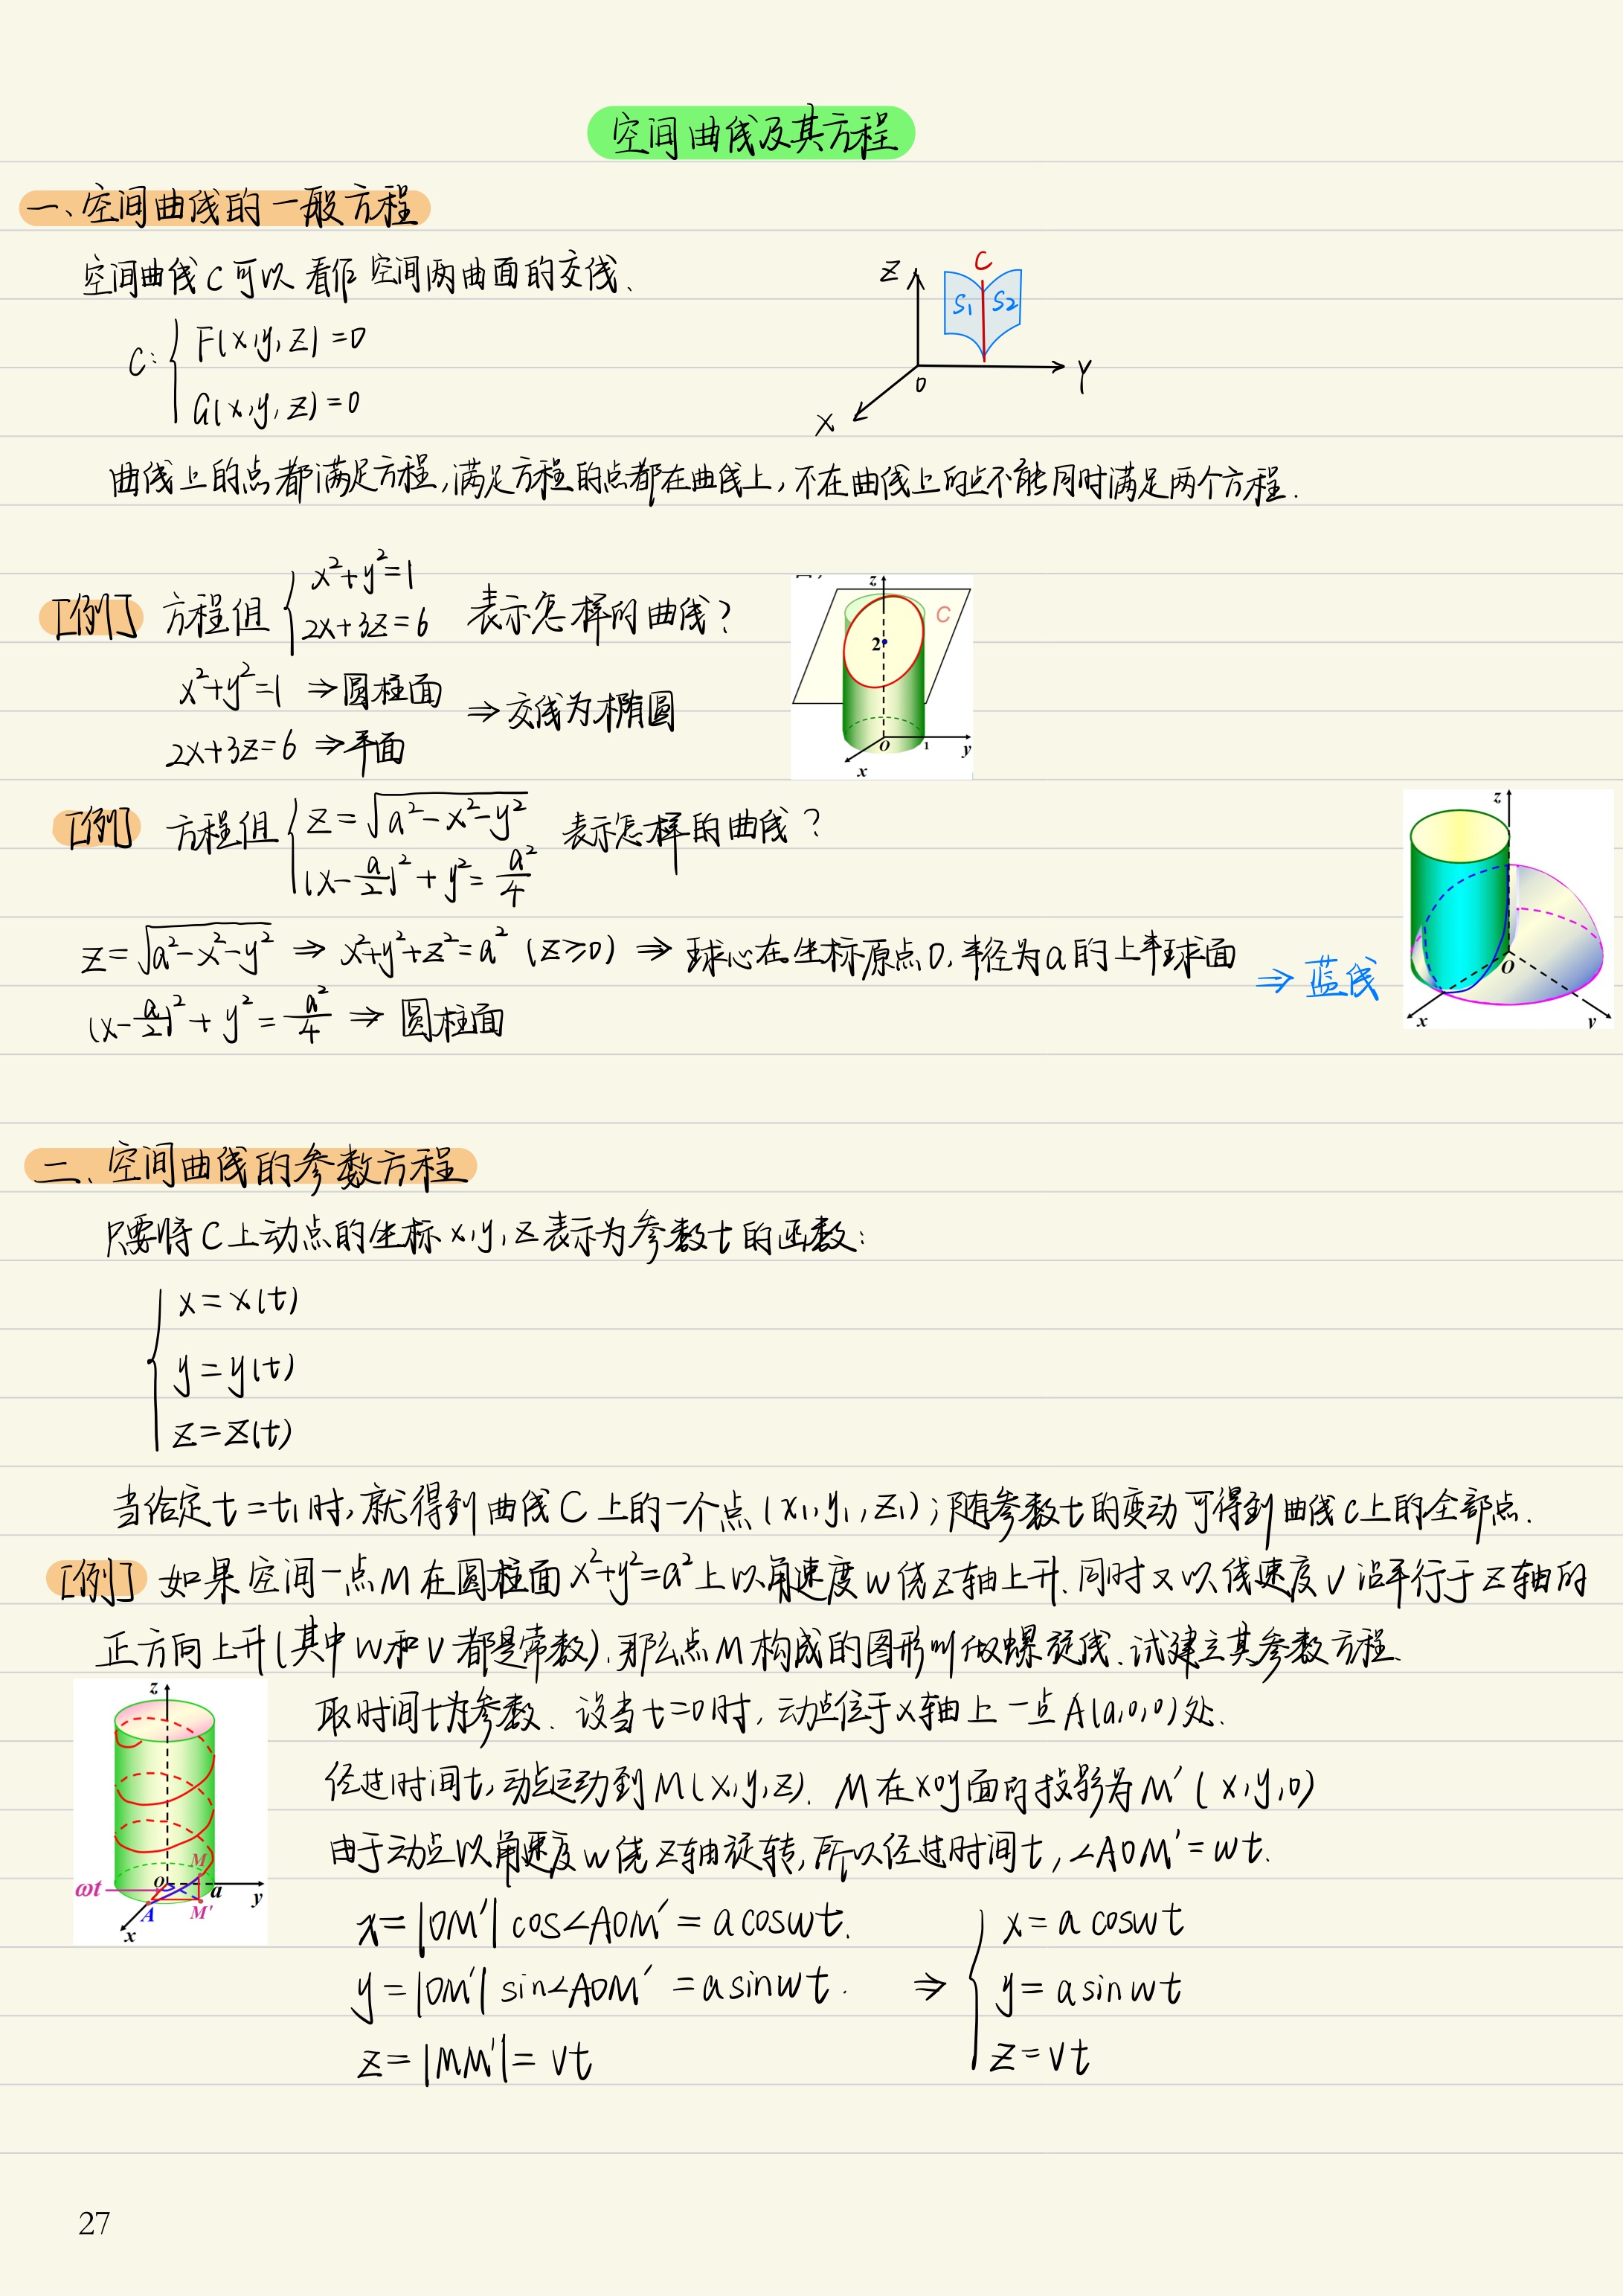 空间曲线及其方程
一、空间曲线的一般方程
空间曲线C可以看作空间两曲面的交线、
C: { F(x,y,z)=0
G(x,y,z)=0
Z C S1 S2 O Y X
曲线上的点都满足方程,满足方程的点都在曲线上,不在曲线上的点不能同时满足两个方程.
[例] 方程组 { x²+y²=1
2x+3z=6 表示怎样的曲线?
x²+y²=1 ⇒圆柱面
2x+3z=6 ⇒平面
⇒交线为椭圆
z C 2 O 1 y x
[例] 方程组 { z=√(a²-x²-y²)
(x-a/2)²+y²=a²/4 表示怎样的曲线?
z=√(a²-x²-y²) ⇒ x²+y²+z²=a² (z≥0) ⇒ 球心在坐标原点O,半径为a的上半球面
(x-a/2)²+y²=a²/4 ⇒ 圆柱面
⇒ 蓝线
z O x y
二、空间曲线的参数方程
只要将C上动点的坐标x,y,z表示为参数t的函数:
{ x=x(t)
y=y(t)
z=z(t)
当给定t=t1时,就得到曲线C上的一个点(x1,y1,z1);随参数t的变动可得到曲线C上的全部点.
[例] 如果空间一点M在圆柱面x²+y²=a²上以角速度w绕z轴上升、同时又以线速度v沿平行于z轴的
正方向上升(其中w和v都是常数),那么点M构成的图形叫做螺旋线、试建立其参数方程、
取时间t为参数、设当t=0时,动点位于x轴上一点A(a,0,0)处、
经过时间t,动点运动到M(x,y,z)、M在xoy面的投影为M'(x,y,0)
由于动点以角速度w绕z轴旋转,所以经过时间t,∠AOM'=wt.
x=|OM'|cos∠AOM'=acoswt.
y=|OM'|sin∠AOM'=asinwt.
z=|MM'|=vt
⇒ { x=acoswt
y=asinwt
z=vt
z M O a y ωt A M' x
27